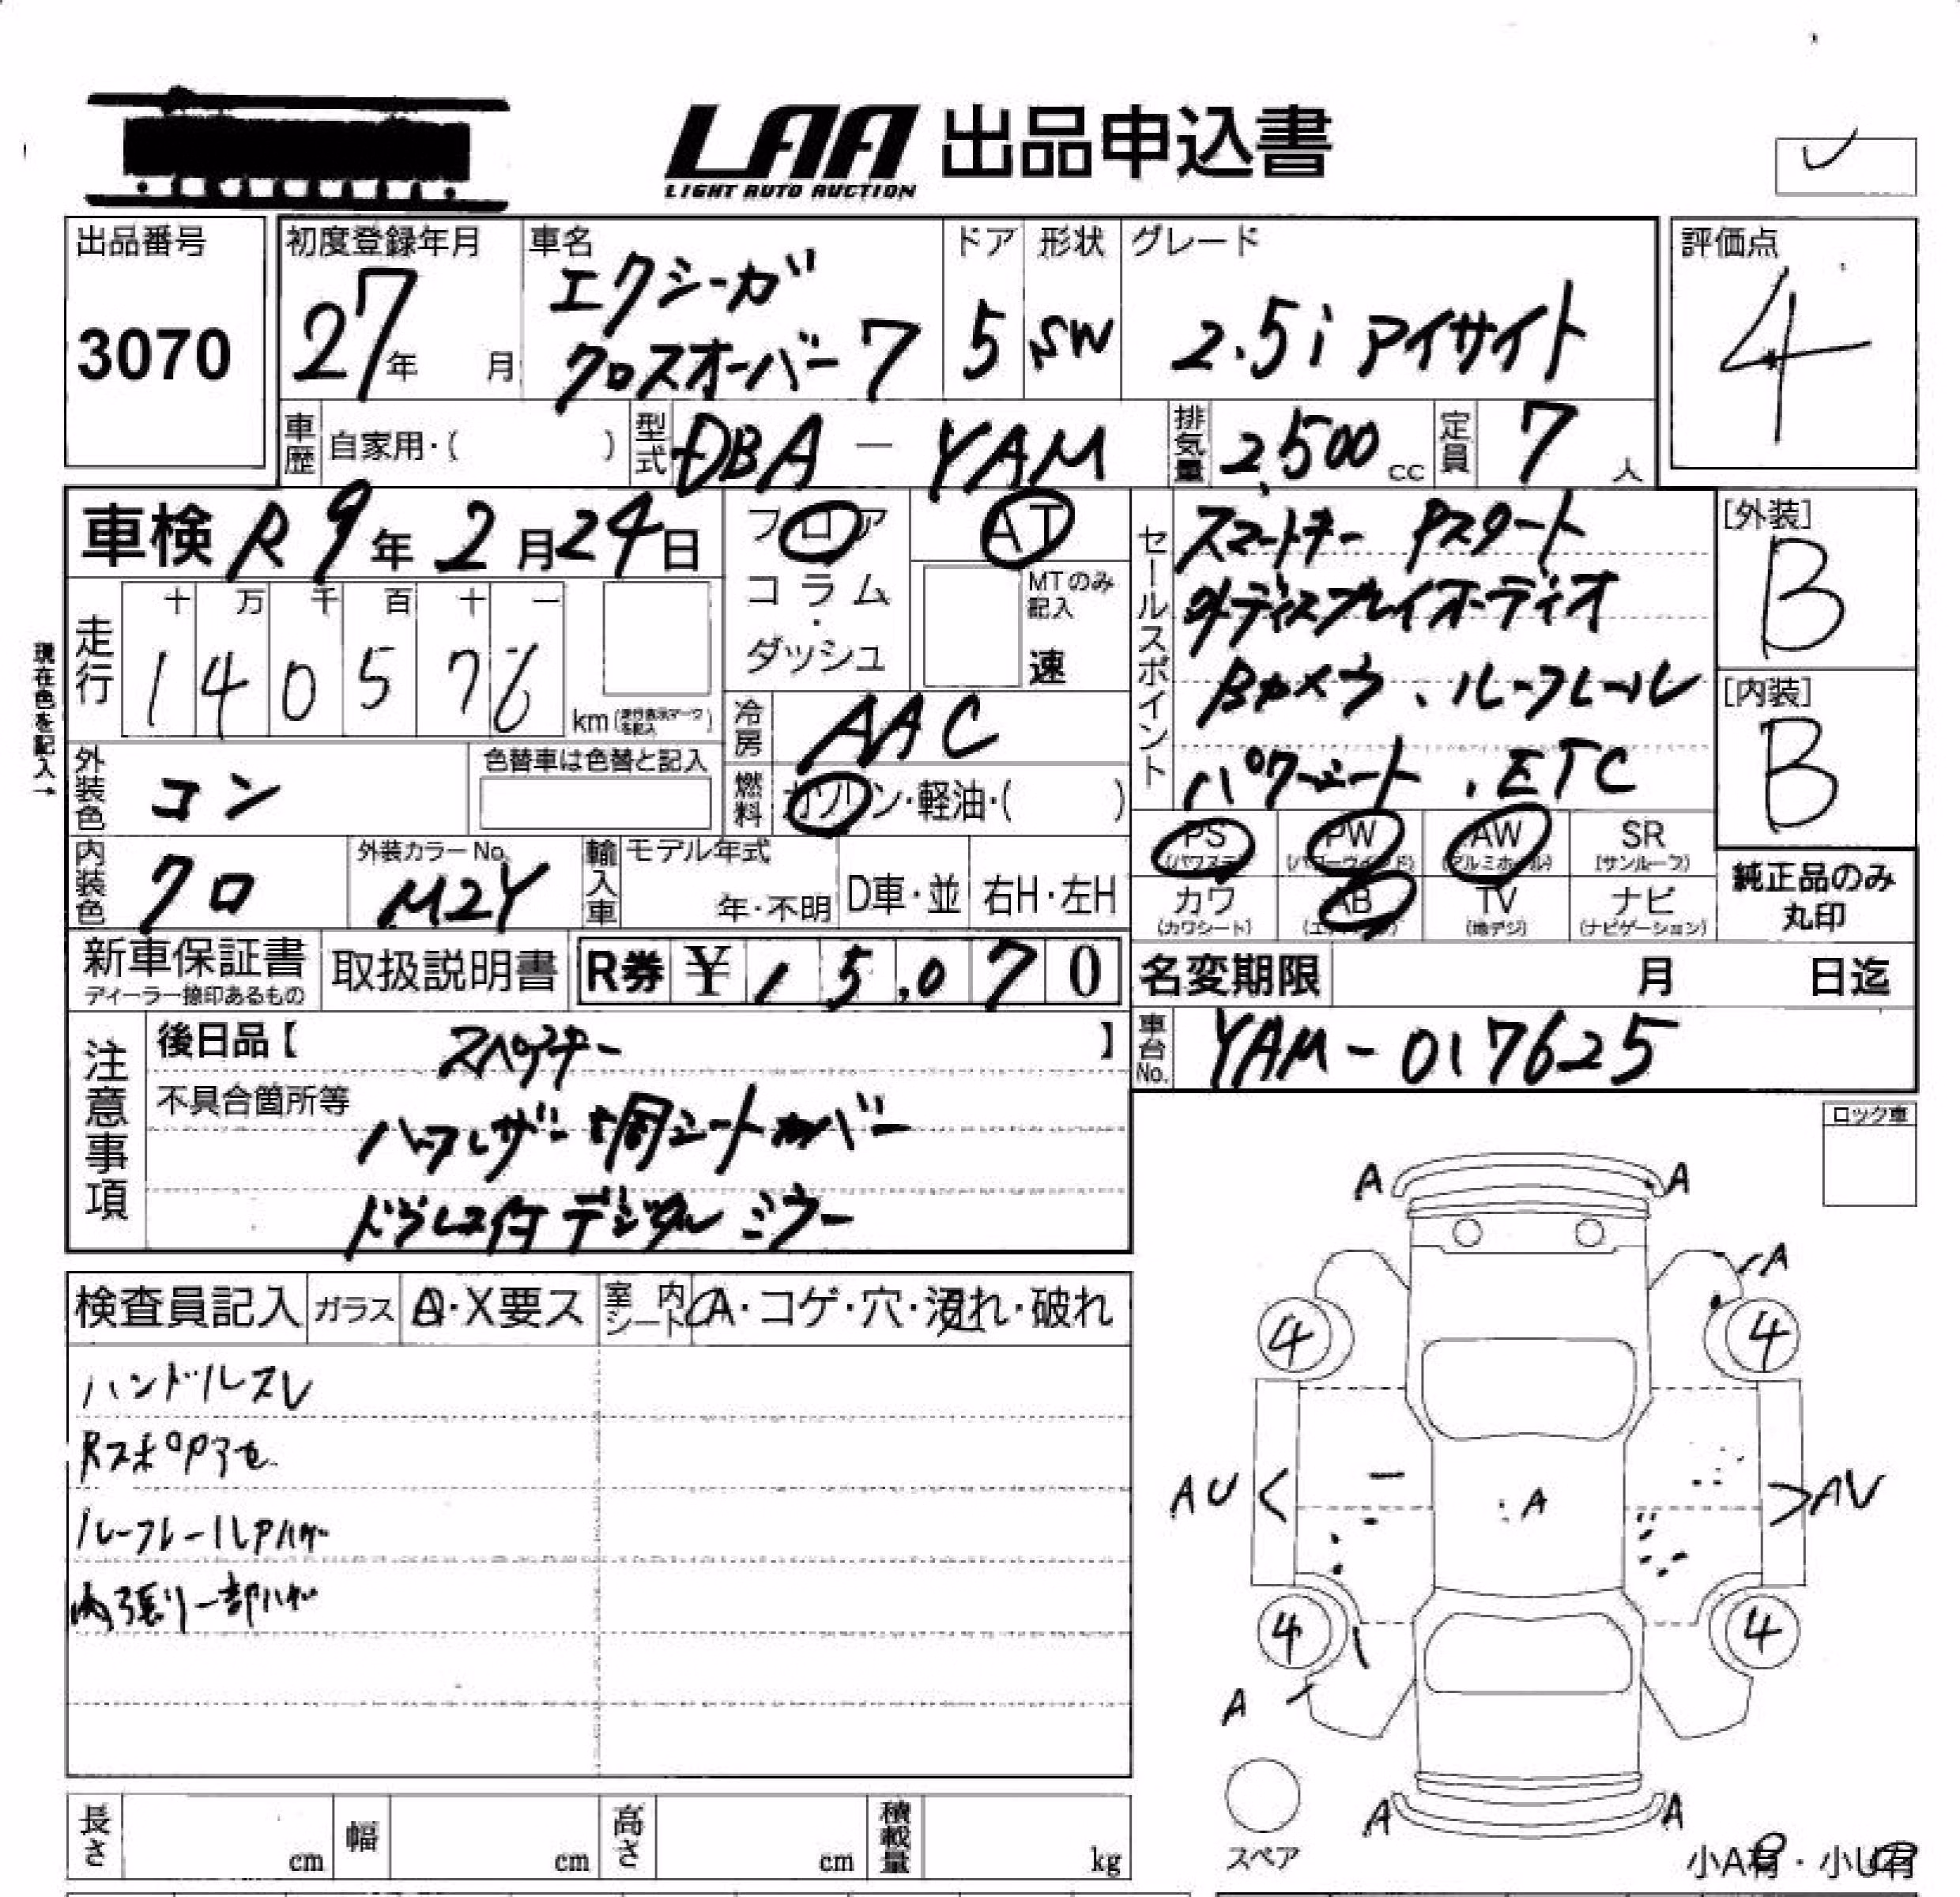 LAA 出品申込書
LIGHT AUTO AUCTION
出品番号
3070
初度登録年月
27年 月
車名
エクシーガ
クロスオーバー7
ドア
5
形状
SW
グレード
2.5i アイサイト
評価点
4
車歴 自家用・( )
型式 DBA-YAM
排気量 2,500 cc
定員 7 人
車検 R9年2月24日
フロア
コラム
・
ダッシュ
AT
MTのみ
記入
速
セールスポイント
スマートキー Pスタート
外ディスプレイオーディオ
Bカメラ、ルーフレール
パワーシート、ETC
[外装]
B
[内装]
B
現在色を記入→
走行
十 万 千 百 十 一
1 4 0 5 7 6
km (走行表示マークを記入)
冷房 AAC
燃料 ガソリン・軽油・( )
外装色 コン
色替車は色替と記入
内装色 クロ
外装カラーNo.
M2Y
輸入車
モデル年式
年・不明
D車・並
右H・左H
PS (パワステ)
PW (パワーウインド)
AW (アルミホイール)
SR (サンルーフ)
カワ (カワシート)
AB
TV (地デジ)
ナビ (ナビゲーション)
純正品のみ
丸印
新車保証書
ディーラー捺印あるもの
取扱説明書
R券 ¥15,070
名変期限 月 日迄
車台No. YAM-017625
注意事項
後日品【 スペアキー 】
不具合箇所等
ハーフレザー調シートカバー
ドラレコ付デジタルミラー
ロック車
検査員記入
ガラス A・X要ス
室内シート A・コゲ・穴・汚れ・破れ
ハンドルスレ
Rスポアセ
ルーフレールPハゲ
内張り一部ハガレ
A A
A
4 4
AU A AU
4 4
A
A A
スペア
小A有・小U有
長さ cm
幅 cm
高さ cm
積載量 kg